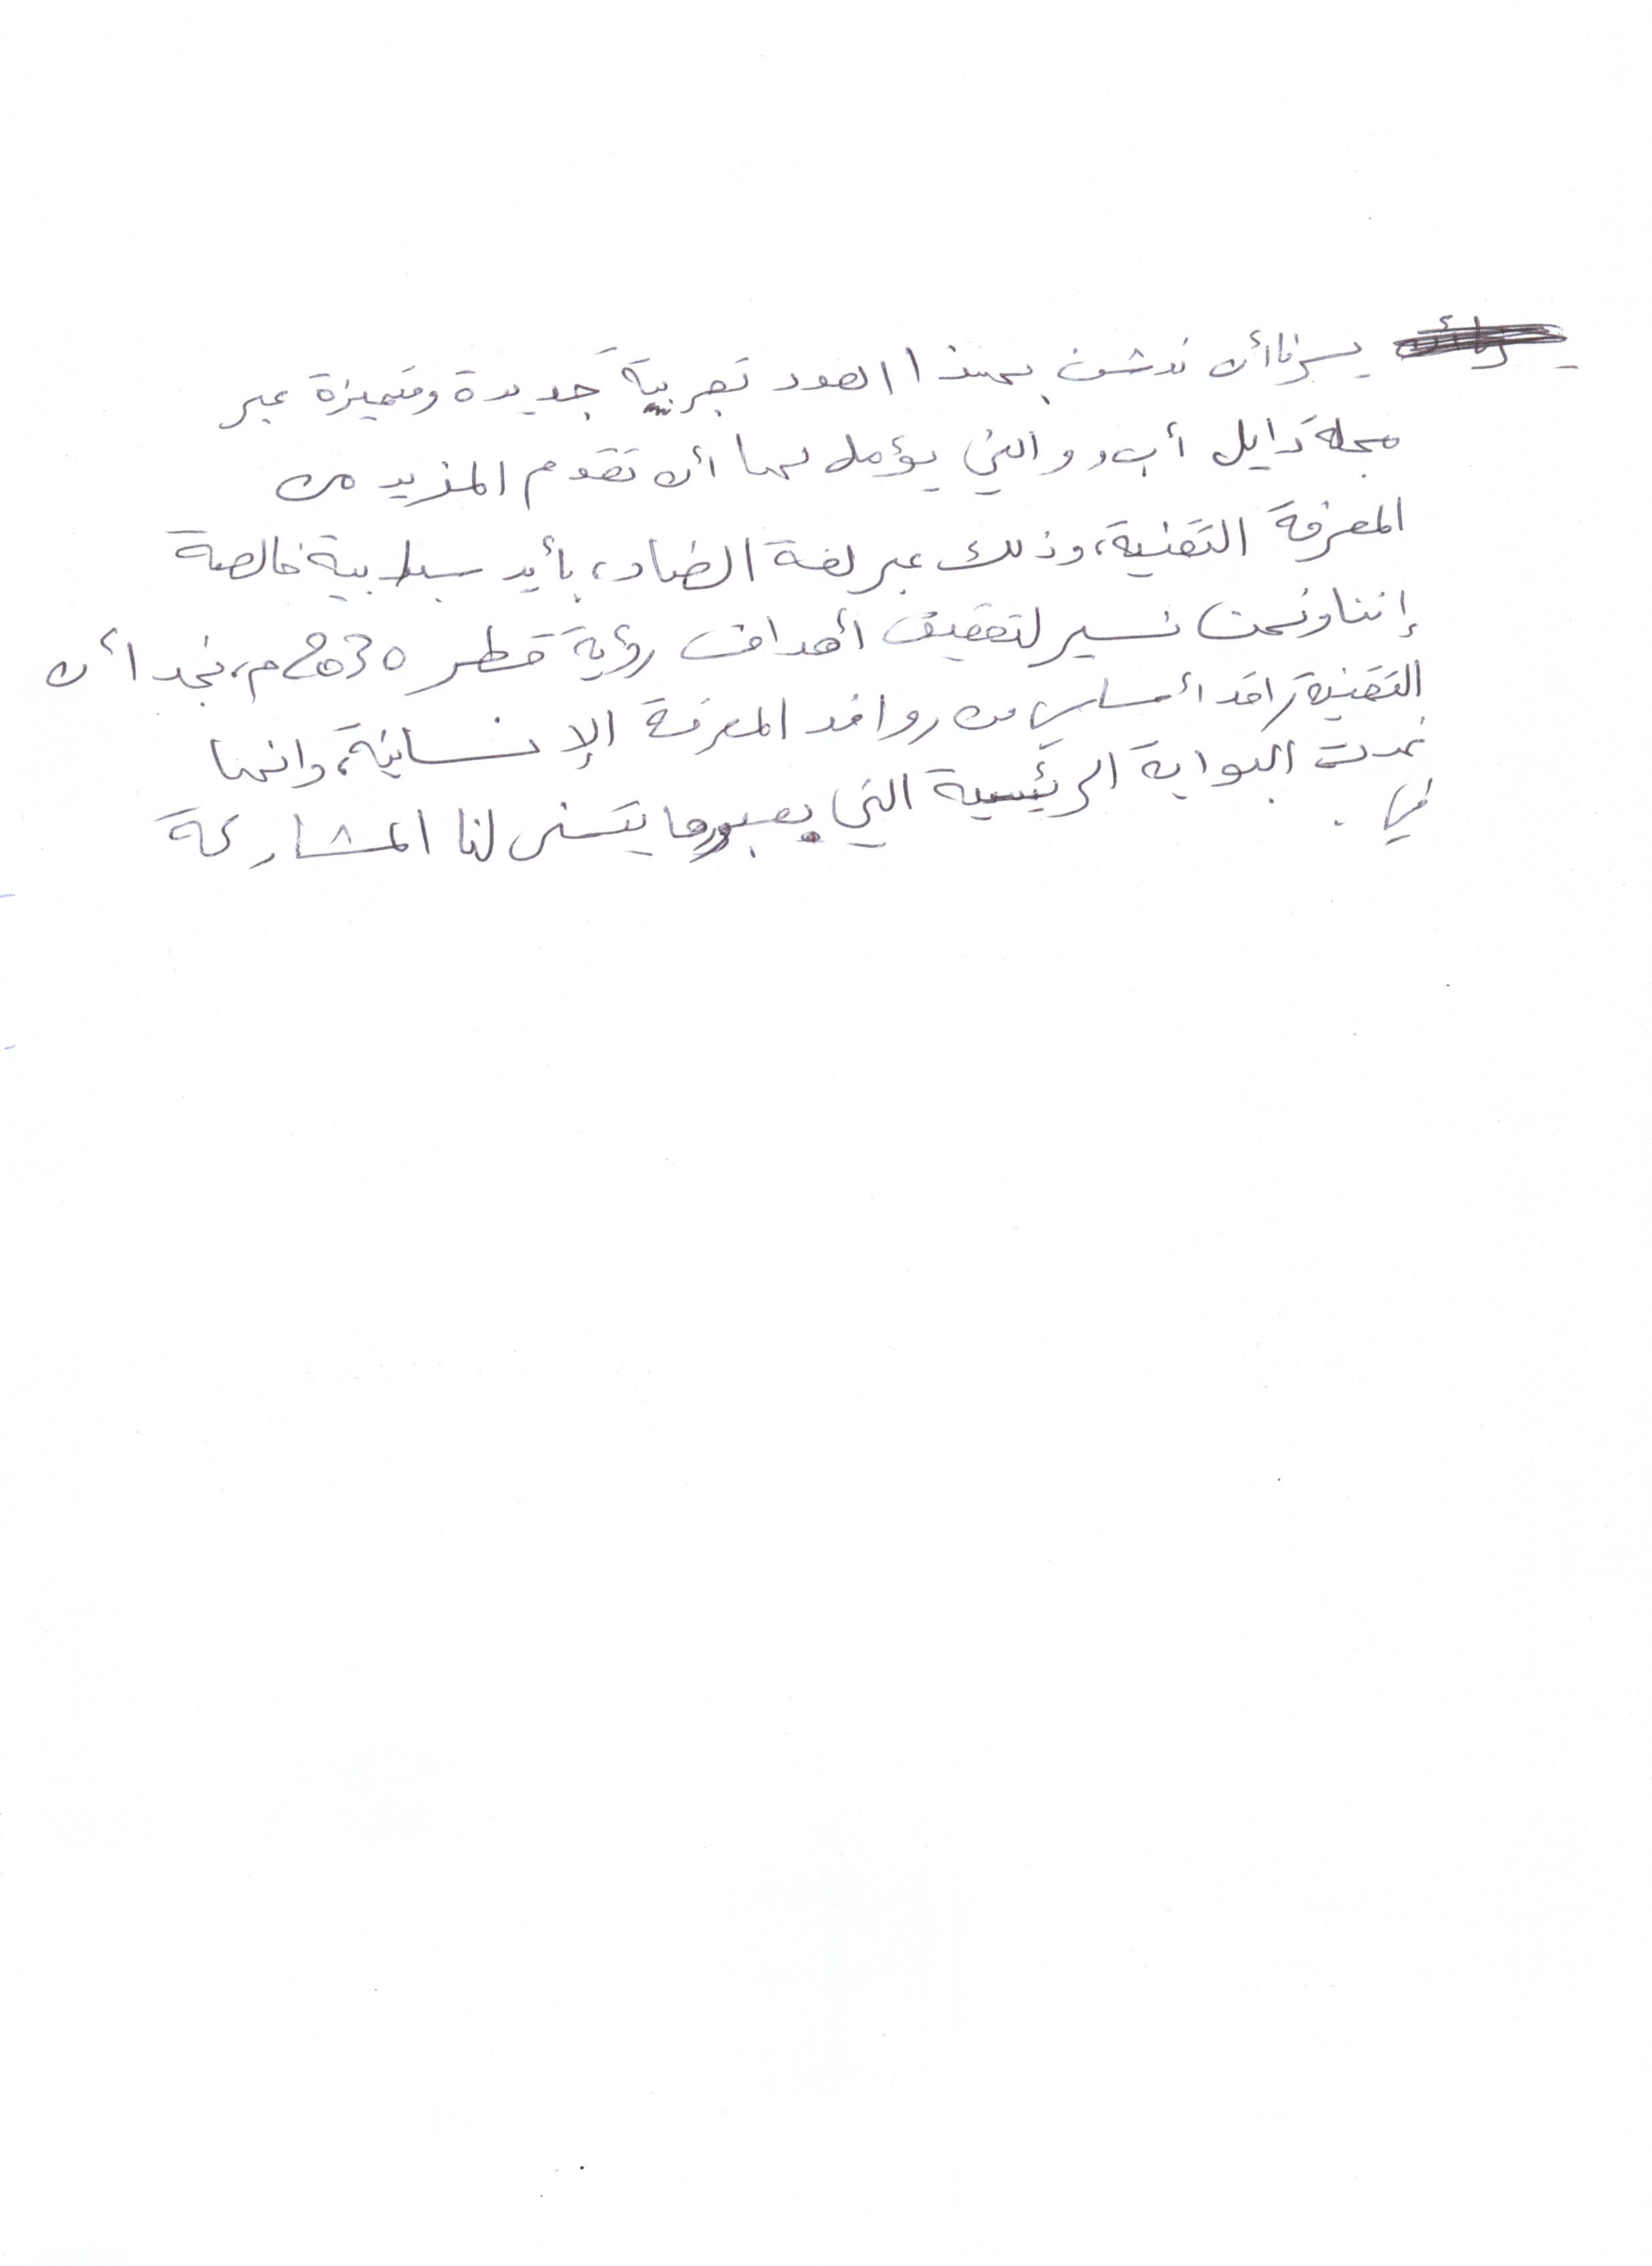 يسرنا أن ندشن بهذا العدد تجربية جديدة ومتميزة عبر
مجلة دايل أب، والتي يؤمل لها أن تقوم المزيد من
المعرفة التقنية، وذلك عبر لغة الضاد، بأيد سبطبية خالصة
إننا ونحن نسير لتحقيق أهداف رؤية قطر 2030م، نجد أن
التقنية رافد أساسي من روافد المعرفة الإنسانية، وانها
غدت البوابة الرئيسية التي بعبورها يتسنى لنا المشاركة
في.